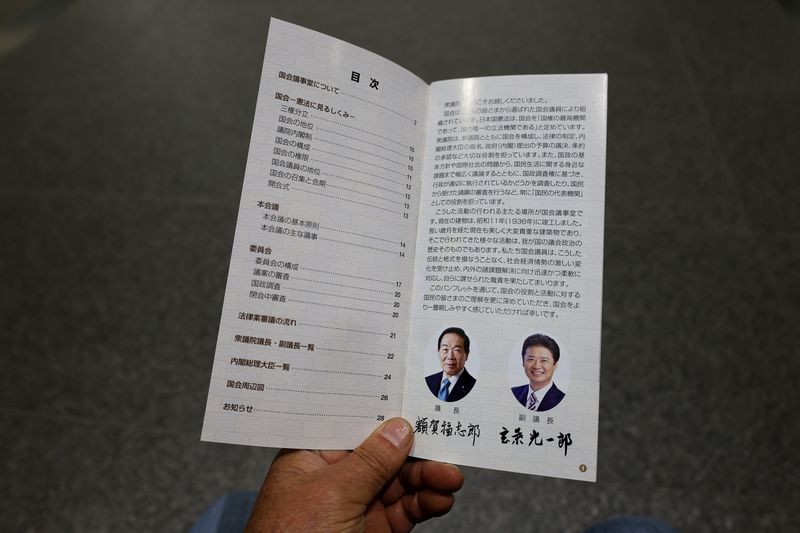 目 次
国会議事堂について 2
国会－憲法に見るしくみ－
三権分立
国会の地位 10
議院内閣制 10
国会の構成 10
国会の権限 11
国会議員の地位 12
国会の召集と会期 13
開会式 13
本会議
本会議の基本原則 14
本会議の主な議事 14
委員会
委員会の構成 17
議案の審査 20
国政調査 20
閉会中審査 20
法律案審議の流れ 21
衆議院議長・副議長一覧 22
内閣総理大臣一覧 24
国会周辺図 26
お知らせ 28
衆議院 こそお越しくださいました。
国会は の皆さまから選ばれた国会議員により組
織されています。日本国憲法は、国会を「国権の最高機関
であって、国の唯一の立法機関である」と定めています。
衆議院は、参議院とともに国会を構成し、法律の制定、内
閣総理大臣の指名、政府（内閣）提出の予算の議決、条約
の承認など大切な役割を担っています。また、国政の基
本方針や国際社会の問題から、国民生活に関する身近な
課題まで幅広く議論するとともに、国政調査権に基づき、
行政が適切に執行されているかどうかを調査したり、国民
から受けた請願の審査を行うなど、常に「国民の代表機関」
としての役割を担っています。
こうした活動の行われる主たる場所が国会議事堂で
す。現在の建物は、昭和11年（1936年）に竣工しました。
長い歳月を経た現在も美しく大変貴重な建築物であり、
そこで行われてきた様々な活動は、我が国の議会政治の
歴史そのものでもあります。私たち国会議員は、こうした
伝統と格式を損なうことなく、社会経済情勢の激しい変
化を受け止め、内外の諸課題解決に向け迅速かつ柔軟に
対応し、自らに課せられた職責を果たしてまいります。
このパンフレットを通じて、国会の役割と活動に対する
国民の皆さまのご理解を更に深めていただき、国会をよ
り一層親しみやすく感じていただければ幸いです。
議 長
副 議 長
額賀福志郎
玄葉光一郎
1